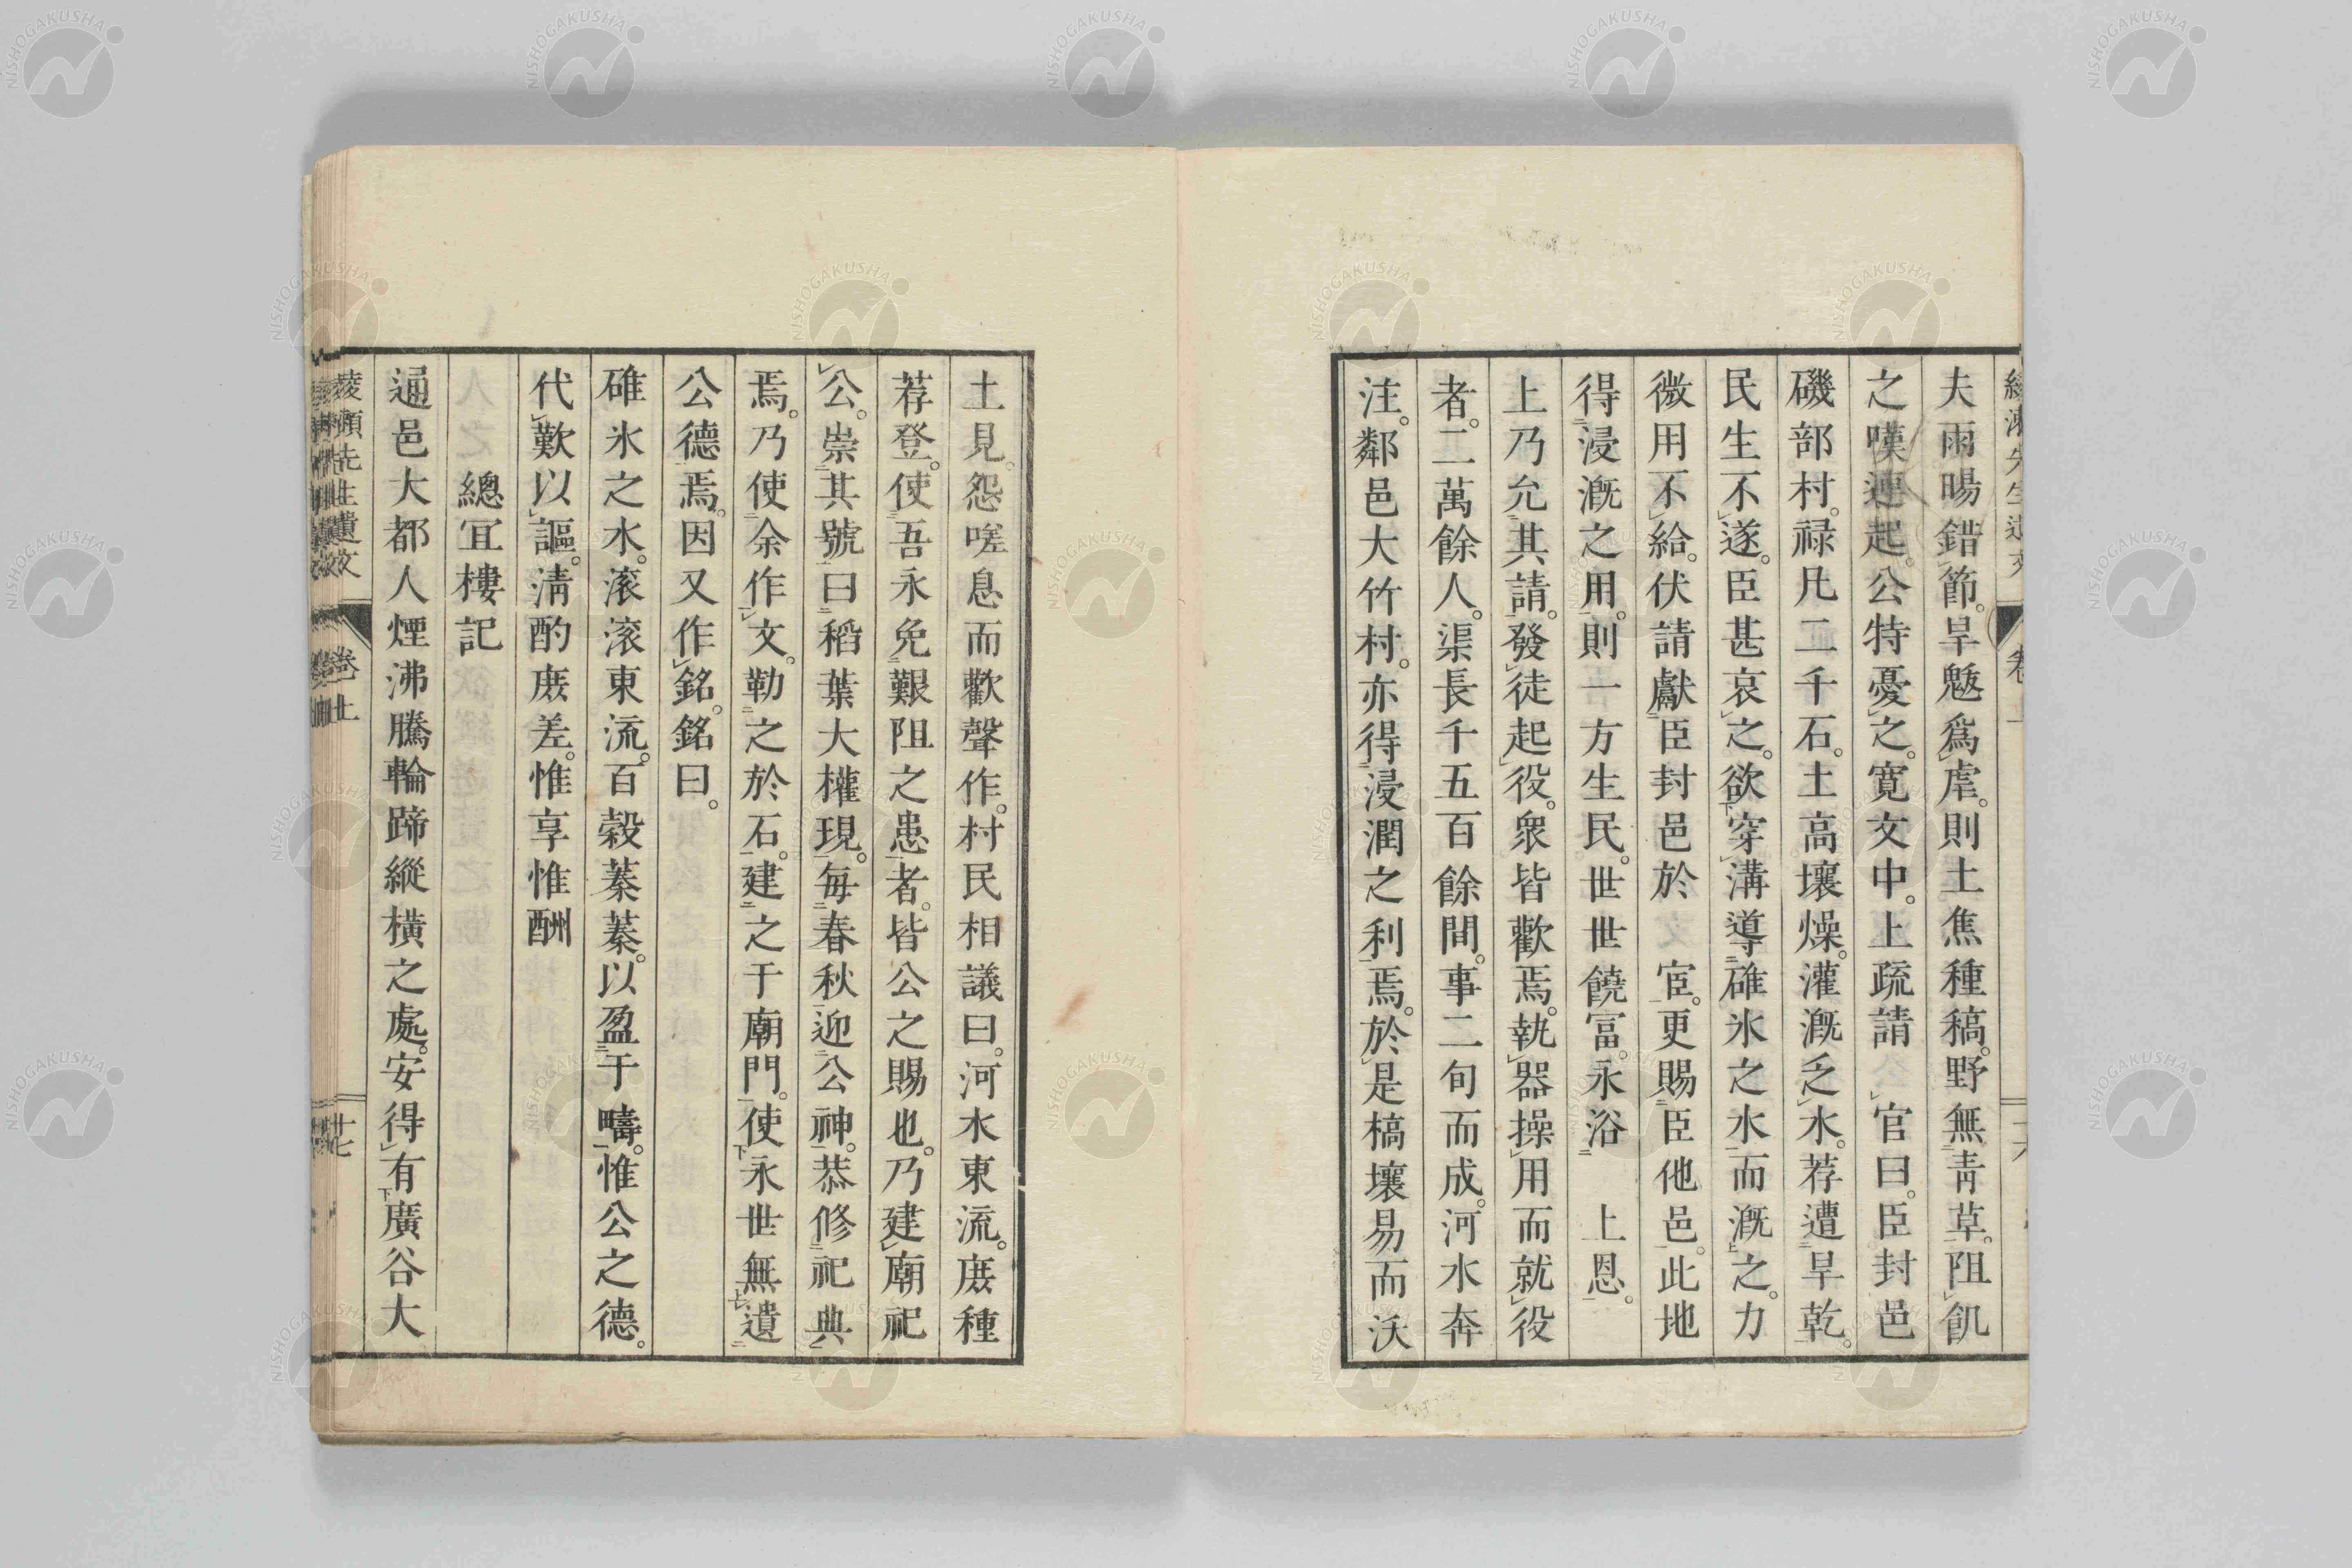 夫雨暘錯節。旱魃爲虐。則土焦種稿。野無青草。阻飢
之嘆連起。公特憂之。寛文中。上疏請　官曰。臣封邑
磯部村。禄凡二千石。土高壤燥。灌漑乏水。荐遭旱乾。
民生不遂。臣甚哀之。欲穿溝導碓氷之水而漑之。力
微用不給。伏請獻臣封邑於　宦。更賜臣他邑。此地
得浸漑之用。則一方生民。世世饒富。永浴　上恩。
上乃允其請。發徒起役。衆皆歡焉。執器操用而就役
者。二萬餘人。渠長千五百餘間。事二旬而成。河水奔
注。鄰邑大竹村。亦得浸潤之利焉。於是槁壤易而沃
土見。怨嗟息而歡聲作。村民相議曰。河水東流。庶種
荐登。使吾永免艱阻之患者。皆公之賜也。乃建廟祀
公。崇其號曰稻葉大權現。毎春秋迎公神。恭修祀典
焉。乃使余作文。勒之於石。建之于廟門。使永世無遺
公德焉。因又作銘。銘曰。
碓氷之水。滚滚東流。百穀蓁蓁。以盈于疇。惟公之德。
代歎以謳。淸酌庶差。惟享惟酬
總宜樓記
通邑大都人煙沸騰輪蹄縱橫之處。安得有廣谷大
先生遺文　卷上　十七
NISHOGAKUSHA